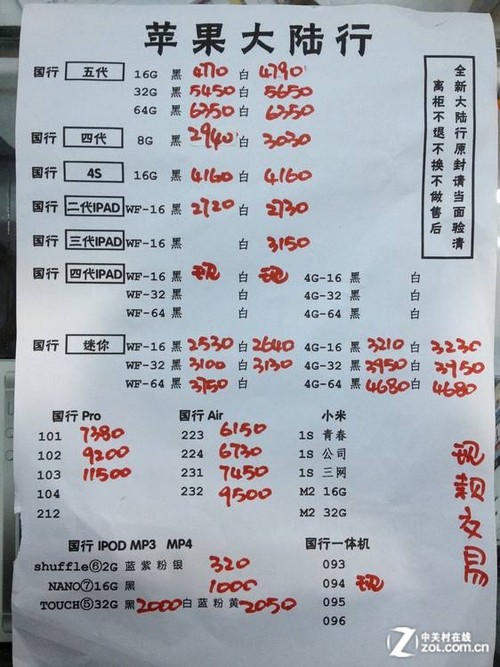 苹果大陆行
国行 五代 16G 黑 4770 白 4790
32G 黑 5450 白 5650
64G 黑 6350 白 6350
国行 四代 8G 黑 2940 白 3030
国行 4S 16G 黑 4160 白 4160
国行 二代IPAD WF-16 黑 2720 白 2730
国行 三代IPAD WF-16 黑 白 3150
国行 四代IPAD WF-16 黑 现 白 现 4G-16 黑 白
WF-32 黑 白 4G-32 黑 白
WF-64 黑 白 4G-64 黑 白
国行 迷你 WF-16 黑 2530 白 2640 4G-16 黑 3210 白 3230
WF-32 黑 3100 白 3130 4G-32 黑 3950 白 3950
WF-64 黑 3750 白 4G-64 黑 4680 白 4680
全新大陆行原封请当面验清
离柜不退不换不做售后
国行 Pro
101 7380
102 9200
103 11500
104
212
国行 Air
223 6150
224 6730
231 7450
232 9500
小米
1S 青春
1S 公司
1S 三网
M2 16G
M2 32G
现款交易
国行 IPOD MP3 MP4
shuffle⑥2G 蓝 紫 粉 银 320
NANO⑦16G 黑 1000
TOUCH⑤32G 黑 2000 白 蓝 粉 黄 2050
国行一体机
093
094 现
095
096
Z 中关村在线
zol.com.cn